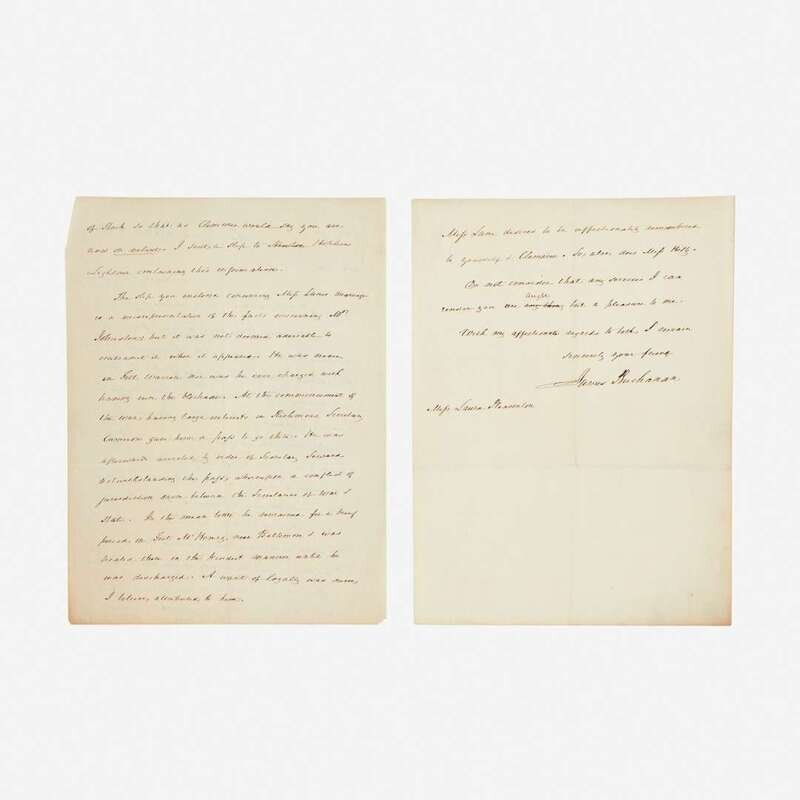 of Stock so that, as Clemence would say you are
now on velvet. I sent a slip to
containing this information.
The slip you enclose concerning Miss Lane's marriage
is a misrepresentation of the facts concerning Mr
Johnston; but it was not deemed advisable to
contradict it when it appeared. He was never
in Fort Warren nor was he ever charged with
having run the blockade. At the commencement of
the war, having large interests in Richmond, Secretary
Cameron gave him a pass to go there. He was
afterwards arrested by order of Secretary Seward
notwithstanding the pass, whereupon a conflict of
jurisdiction arose between the Secretaries of War &
State. In the mean time he remained for a brief
period in Fort McHenry, near Baltimore & was
treated there in the kindest manner until he
was discharged. A want of loyalty was never,
I believe, attributed to him.
Miss Lane desires to be affectionately remembered
to yourself & Clemence. So, also, does Miss Hetty.
Do not consider that any services I can
aught
render you are anything but a pleasure to me.
With my affectionate regards to both, I remain
sincerely your friend
James Buchanan
Miss Laura Pleasonton